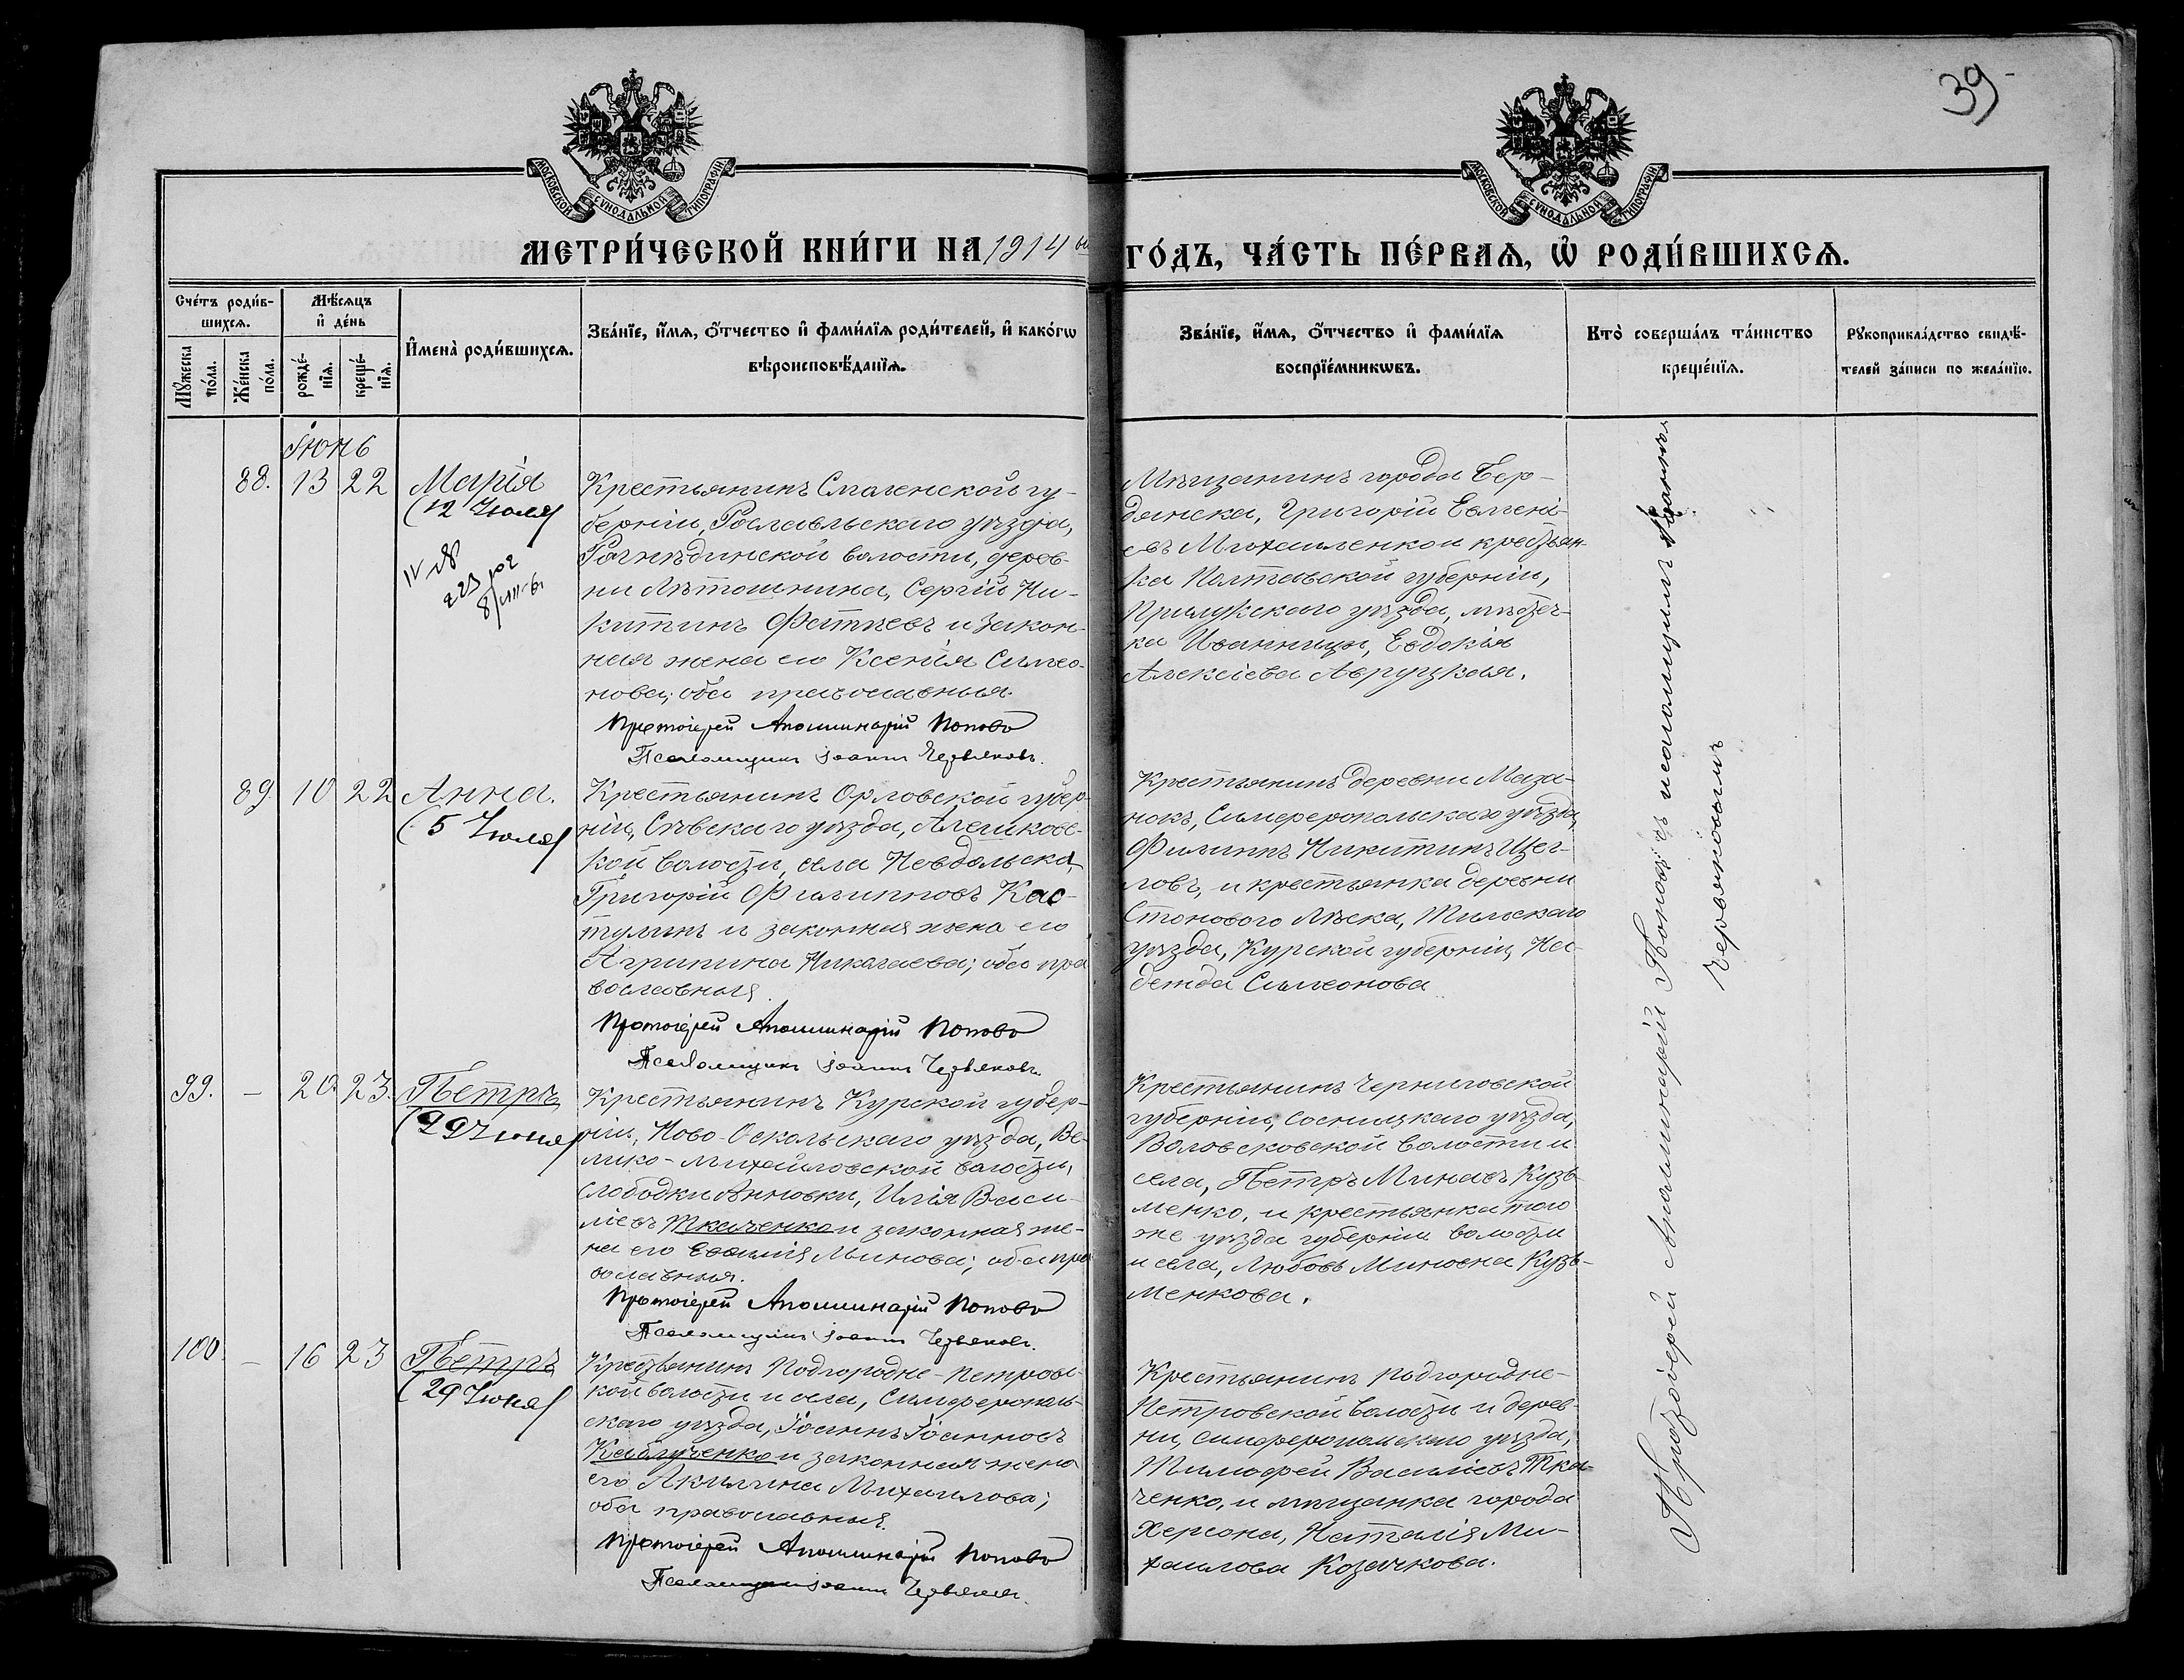 39
МОСКОВСКОЙ СѴНОДАЛЬНОЙ ТИПОГРАФІИ
МОСКОВСКОЙ СѴНОДАЛЬНОЙ ТИПОГРАФІИ
МЕТРИ́ЧЕСКОЙ КНИ́ГИ НА 1914 ГО́ДЪ, ЧА́СТЬ ПЕ́РВАѦ, Ѡ҆ РОДИ́ВШИХСѦ.
Сче́тъ роди́в-
шихсѧ.
Мꙋ́жеска по́ла.
Же́нска по́ла.
Мѣ́сѧцъ
и҆ де́нь
рожде́-
нїѧ.
креще́-
нїѧ.
И҆мена̀ роди́вшихсѧ.
Зва́нїе, и҆́мѧ, ѻ҆́тчество и҆ фами́лїѧ роди́телей, и҆ како́гѡ
вѣроисповѣ́данїѧ.
Зва́нїе, и҆́мѧ, ѻ҆́тчество и҆ фами́лїѧ
воспрїе́мникѡвъ.
Кто̀ соверша́лъ та́инство
креще́нїѧ.
Рꙋкоприкла́дство свидѣ́-
телей за́писи по жела́нїю.
Іюнь
88. 13 22 Марія
(12 Іюля)
Крестьянинъ Смоленской гу-
берніи, Рославльскаго уѣзда,
Рогнѣдинской волости, дерев-
ни Лѣтошнина, Сергій Ни-
китинъ Фатѣевъ и закон-
ная жена его Ксенія Симео-
нова; оба православныя.
Протоіерей Аполлинарій Поповъ
Псаломщикъ Іоаннъ Червяковъ.
Мѣщанинъ города Бер-
дянска, Григорій Евгені-
евъ Михайленко и крестьян-
ка Полтавской губерніи,
Прилукскаго уѣзда, мѣстеч-
ка Иванницы, Евдокія
Алексіева Авруцкая.
89. 10 22 Анна.
(5 Іюля)
Крестьянинъ Орловской губер-
ніи, Сѣвскаго уѣзда, Алешковс-
кой волости, села Невдольска,
Григорій Филипповъ Кас-
тулинъ и законная жена его
Агрипина Николаева; оба пра
вославныя.
Протоіерей Аполлинарій Поповъ
Псаломщикъ Іоаннъ Червяковъ.
Крестьянинъ деревни Маза-
нокъ, Симферопольскаго уѣзда,
Филиппъ Никитинъ Щег-
ловъ, и крестьянка деревни
Стонового Лѣска, Тимскаго
уѣзда, Курской губерніи, На-
дежда Симеонова
99. — 20. 23. Петръ
(29 Іюня)
Крестьянинъ Курской губер-
ніи, Ново-Оскольскаго уѣзда, Ве-
лико-Михайловской волости,
слободки Анновки, Илія Васи-
ліевъ Ткаченко и законная же-
на его Евфимія Минова; оба пра
вославныя.
Протоіерей Аполлинарій Поповъ
Псаломщикъ Іоаннъ Червяковъ.
Крестьянинъ Черниговской
губерніи, Сосницкаго уѣзда,
Воловсковской волости и
села, Петръ Минаевъ Кузь-
менко, и крестьянка того
же уѣзда губерніи волости
и села, Любовь Миновна Кузь-
менкова.
100. — 16 23 Петръ
(29 Іюня)
Крестьянинъ Подгородне-Петровс-
кой волости и села, Симферополь-
скаго уѣзда, Іоаннъ Іоанновъ
Каблученко и законная жена
его Акилина Михаилова;
оба православныя.
Протоіерей Аполлинарій Поповъ
Псаломщикъ Іоаннъ Червяковъ.
Крестьянинъ Подгородне-
Петровской волости и дерев-
ни, Симферопольскаго уѣзда,
Тимофей Василіевъ Тка-
ченко, и мѣщанка города
Херсона, Наталія Ми-
хаилова Козачкова.
Протоіерей Аполлинарій Поповъ съ псаломщикомъ Іоанномъ
Червяковымъ